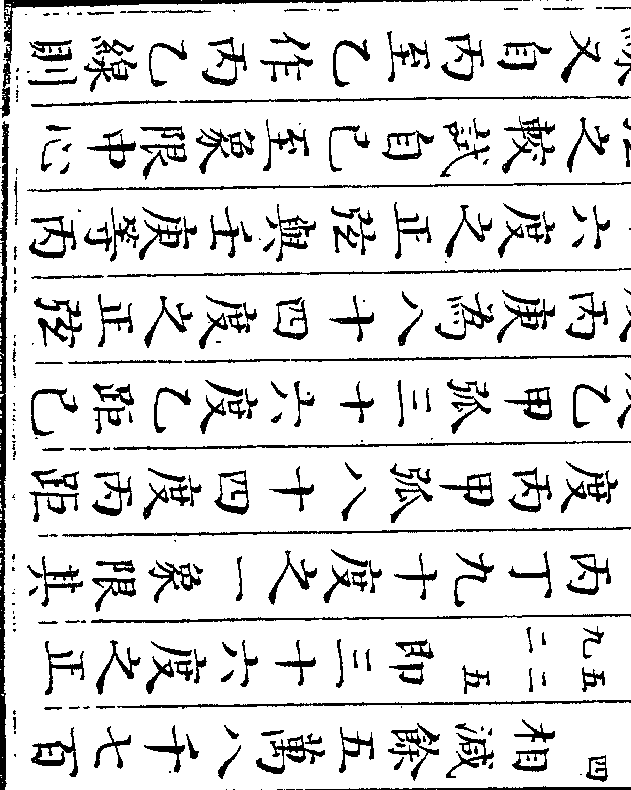 四相減餘五萬八千七百
五二五九二即三十六度之正
丙丁九十度之一象限其
度丙甲弧八十四度丙距
乙甲弧三十六度乙距己
丙庚為八十四度之正弦
六度之正弦與壬庚等丙
之較試自己至象限中心
線又自丙至乙作丙乙線則